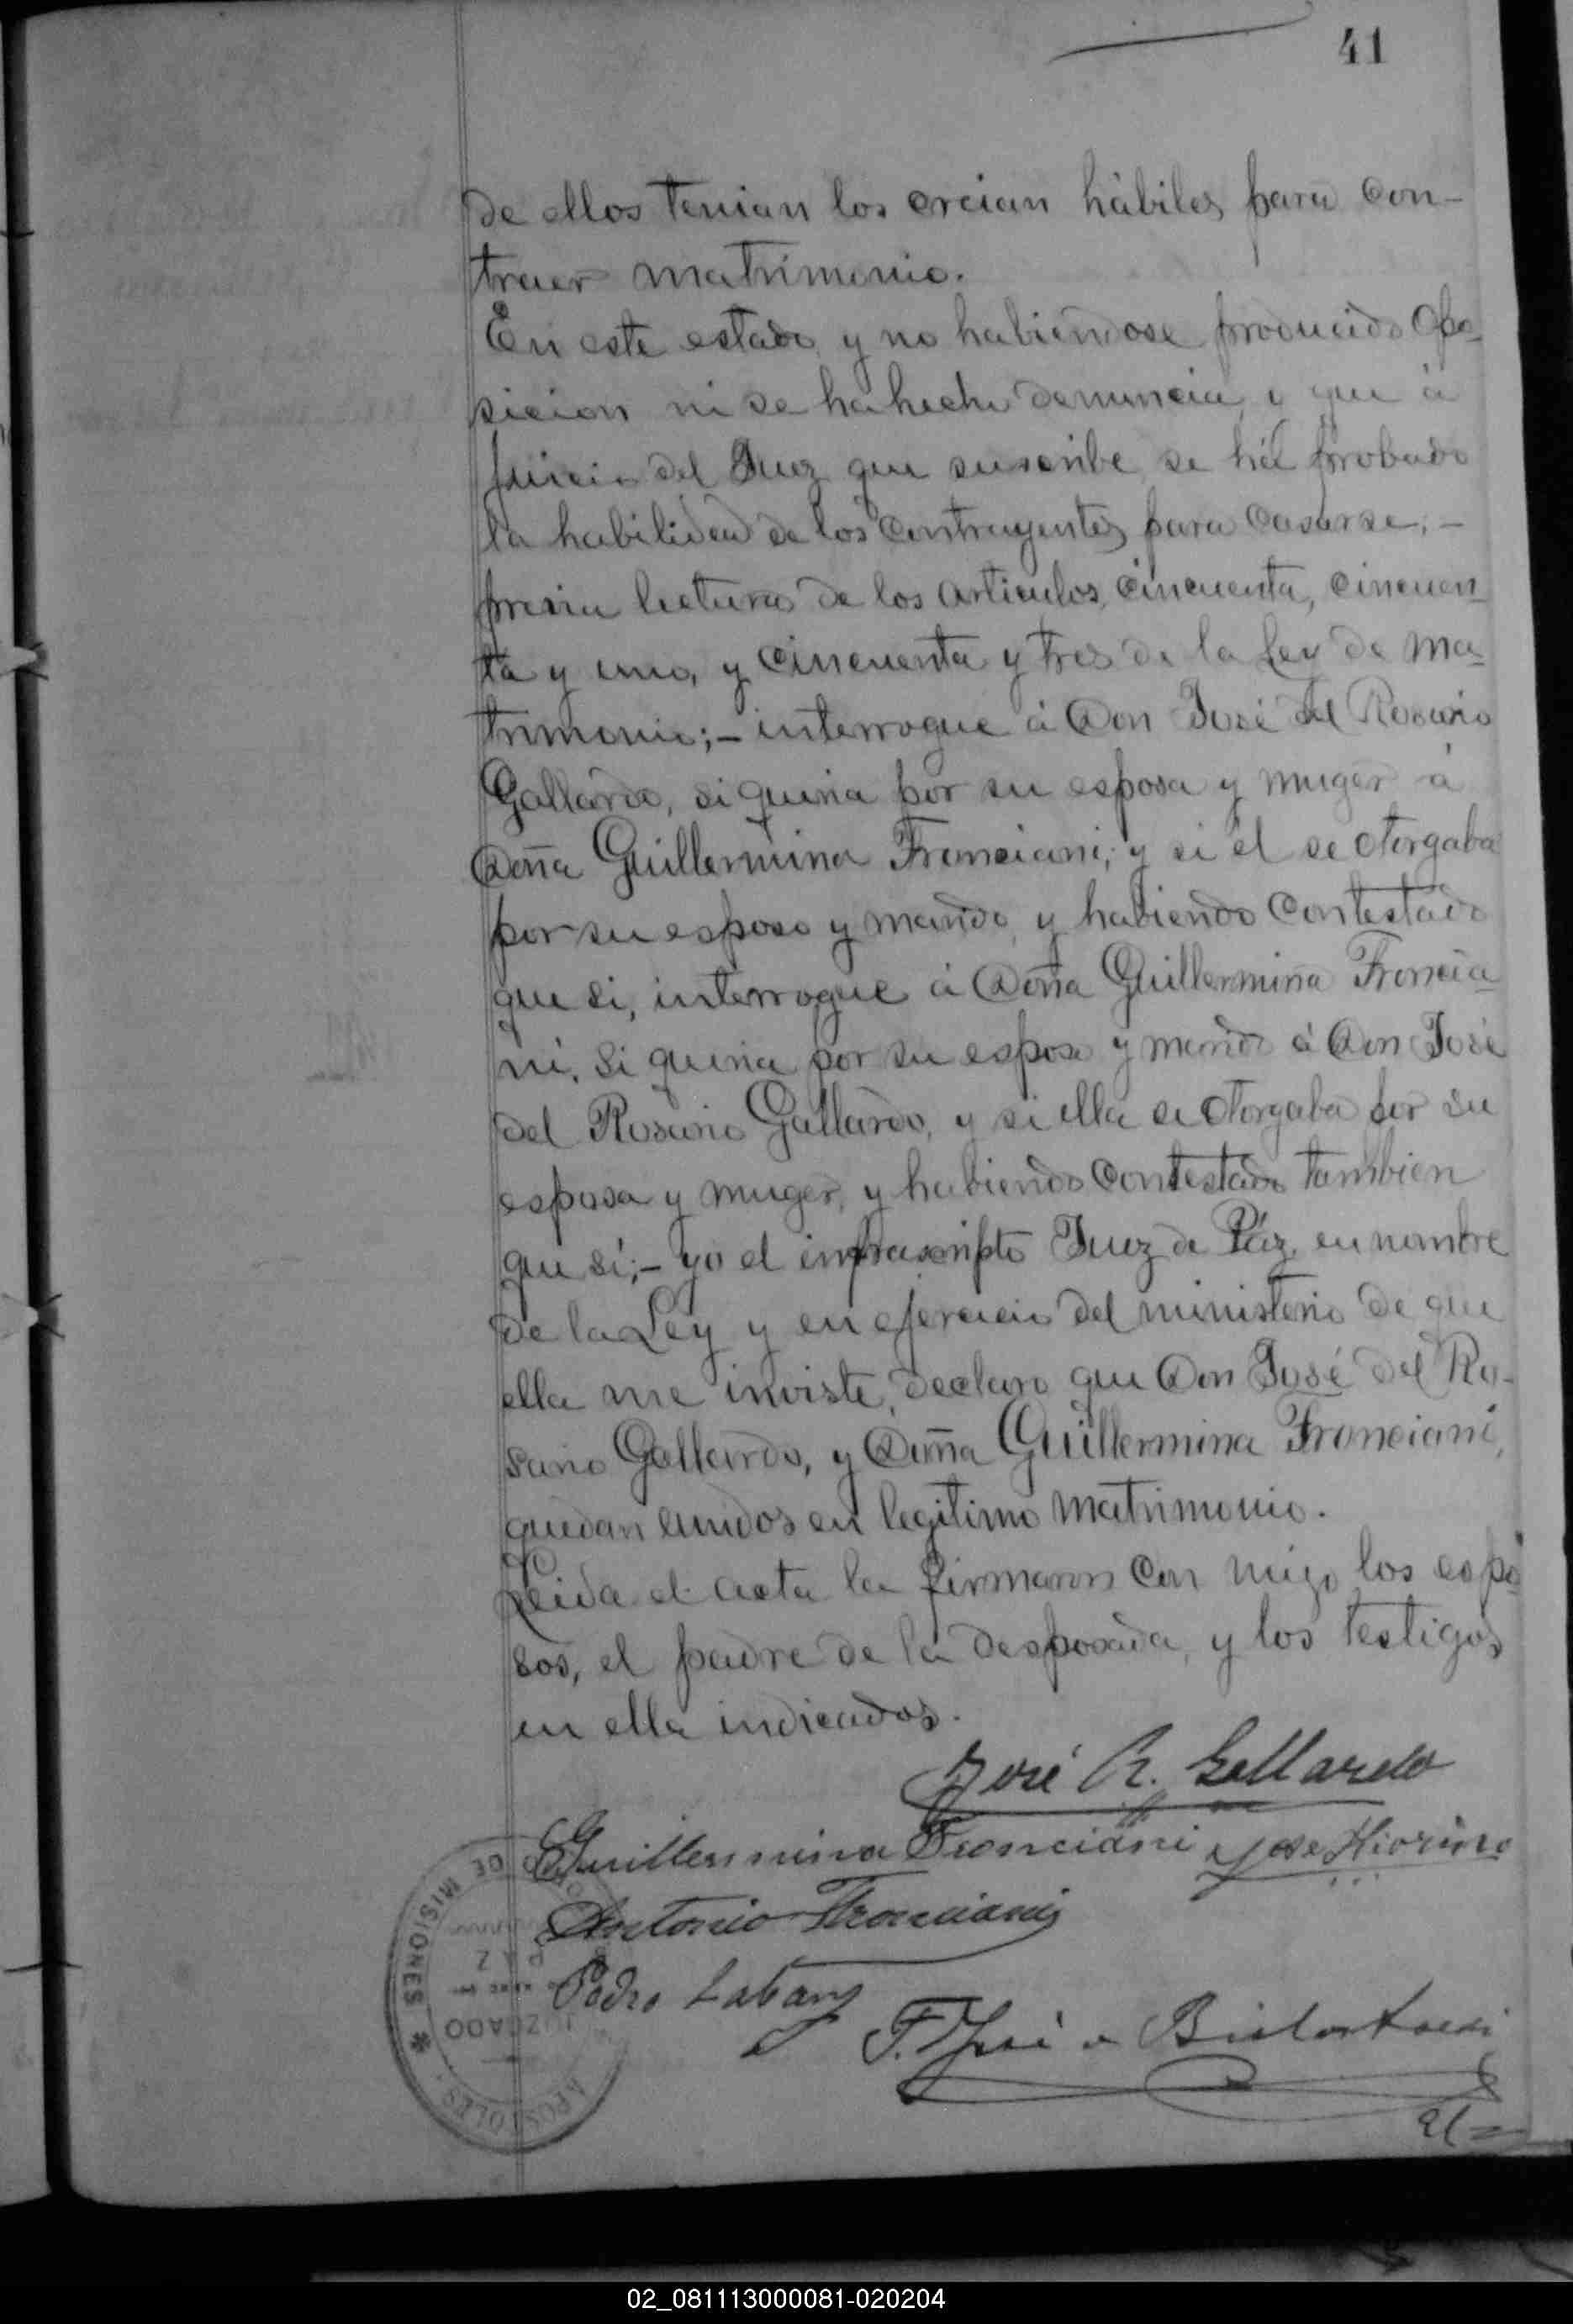 41
de ellos tenian los creian hábiles para con-
traer matrimonio.
En este estado, y no habiendose producido Opo-
sicion ni se ha hecho denuncia, i que á
juicio del Juez que suscribe, se há probado
la habilidad de los contrayentes para casarse;-
previa lectura de los articulos, cincuenta, cincuen-
ta y uno, y cincuenta y tres de la Ley de Ma-
trimonio;- interrogue á Don José del Rosario
Gallardo, si queria por su esposa y muger á
Doña Guillermina Fronciani; y si él se otorgaba
por su esposo y marido, y habiendo contestado
que si, interrogue á Doña Guillermina Froncia-
ni, si queria por su esposo y marido á Don José
del Rosario Gallardo, y si ella se otorgaba por su
esposa y muger, y habiendo contestado tambien
que sí;- yo el infrascripto Juez de Páz, en nombre
de la Ley y en ejercicio del ministerio de que
ella me inviste, declaro que Don José del Ro-
sario Gallardo, y Doña Guillermina Fronciani,
quedan unidos en legitimo matrimonio.
Leida el acta la firmaron con migo los espo-
sos, el padre de la desposada, y los testigos
en ella indicados.
José R. Gallardo
Guillermina Fronciani Jose
Antonio Fronciani
Pedro Labany
DE MISIONES * JUZGADO PAZ APOSTOLES
02_081113000081-020204